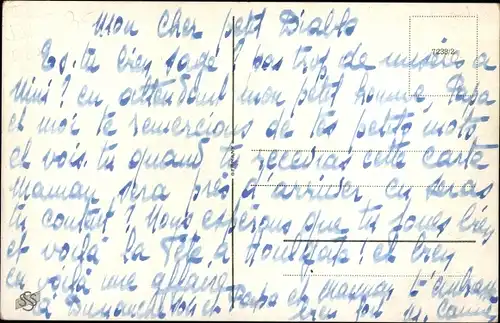 Mon cher petit Diable
Es-tu bien sage ? pas trop de misères à
Mimi ? en attendant mon petit homme, Papa
et moi te remercions de tes petits mots
et vois-tu quand tu recevras cette carte
maman sera près d'arriver en seras
tu content ? Nous espérons que tu joues bien
et voilà la Fête à et bien
en voilà une affaire
à Dimanche et Papa et maman t'embrassent
bien fort
7238/2